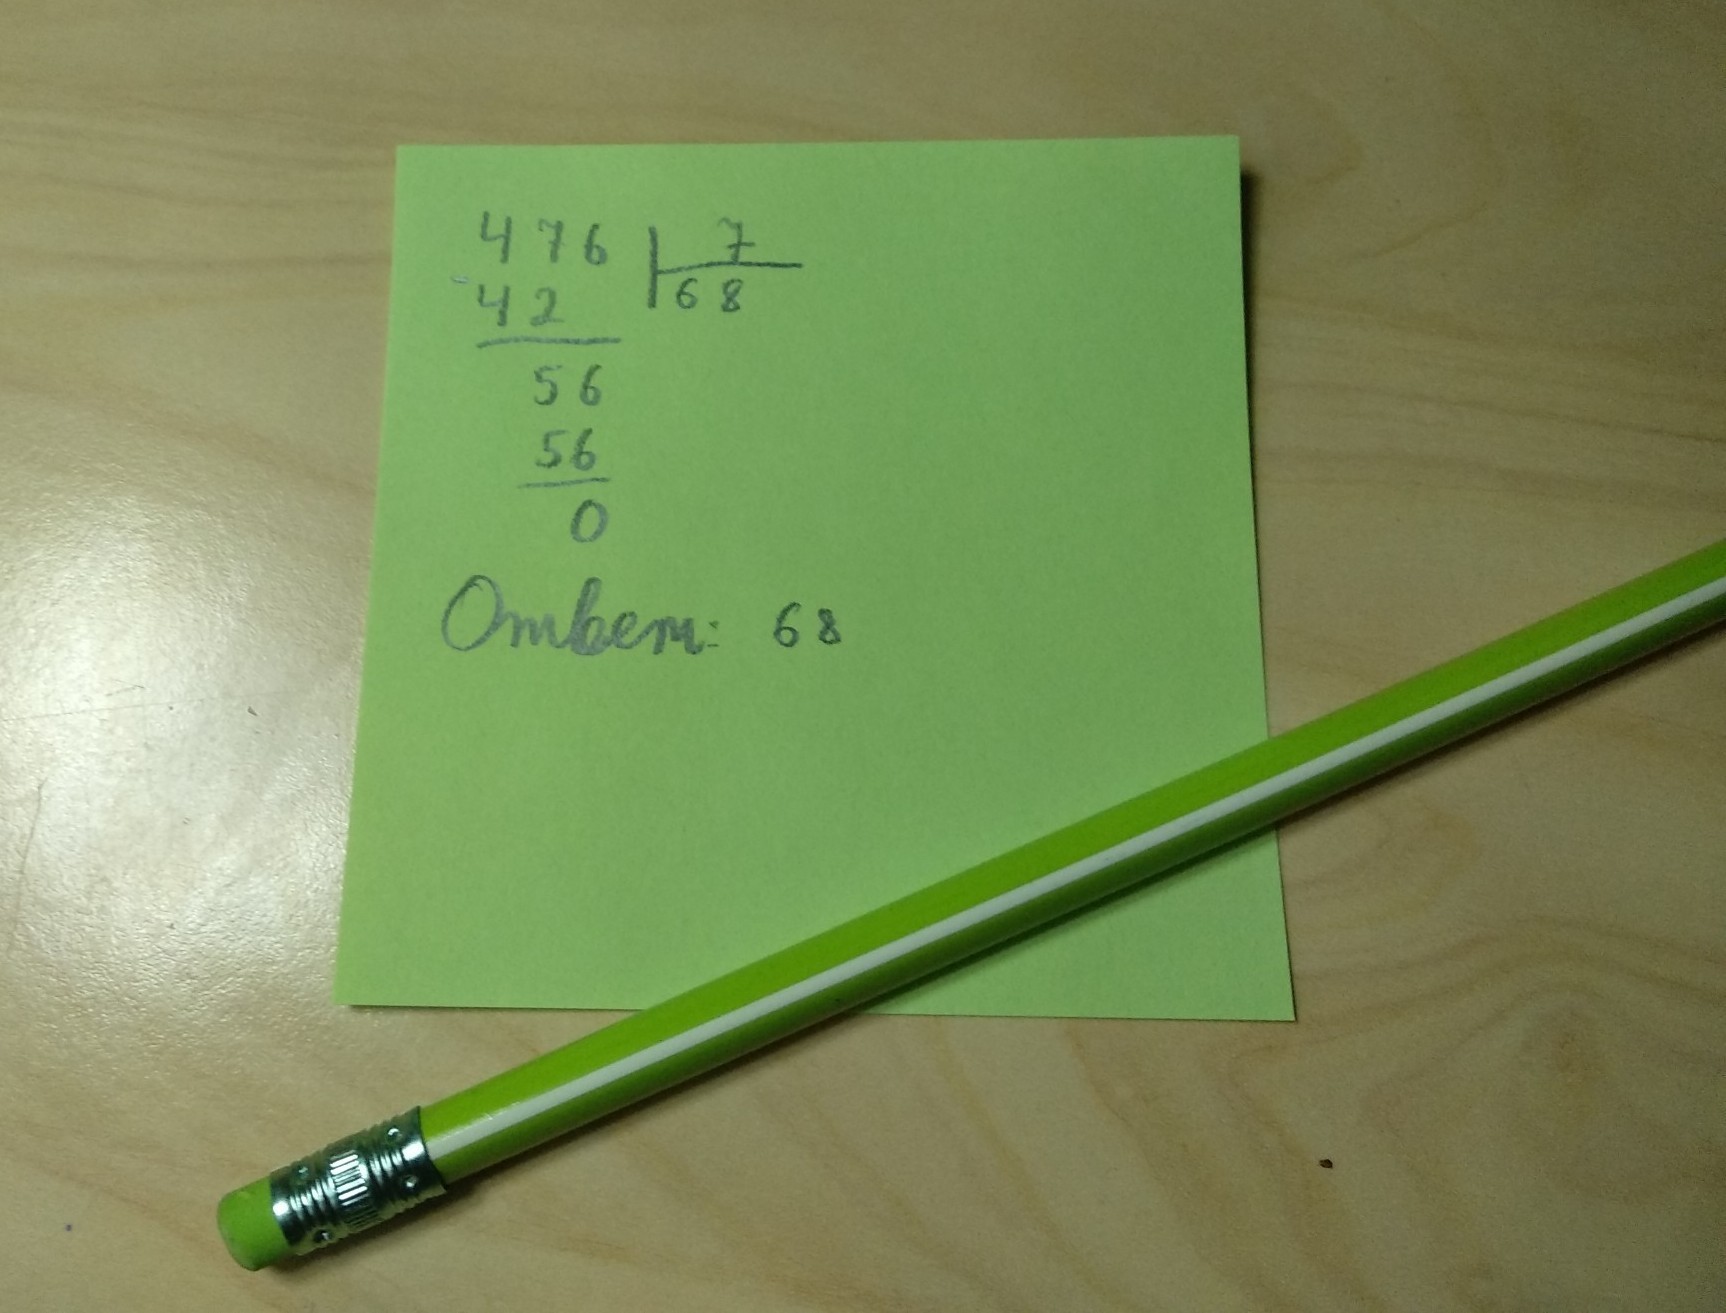 476 | 7
- 42 | 68
56
56
0
Ответ: 68